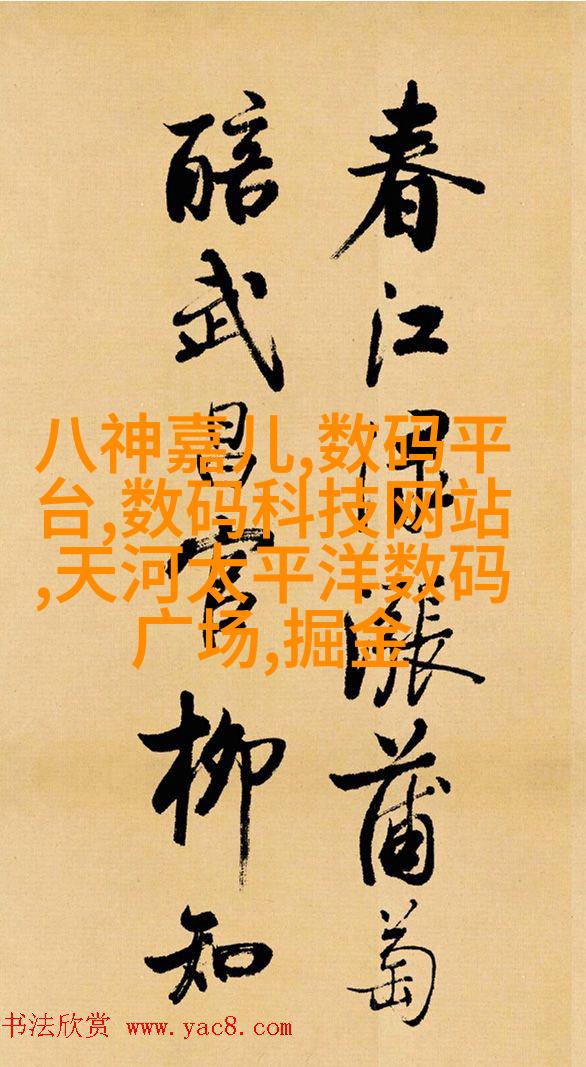 春江淥漲蒲萄
醅武昌官柳知
八神嘉儿,数码平
台,数码科技网站
,天河太平洋数码
广场,掘金
书法欣赏 www.yac8.com